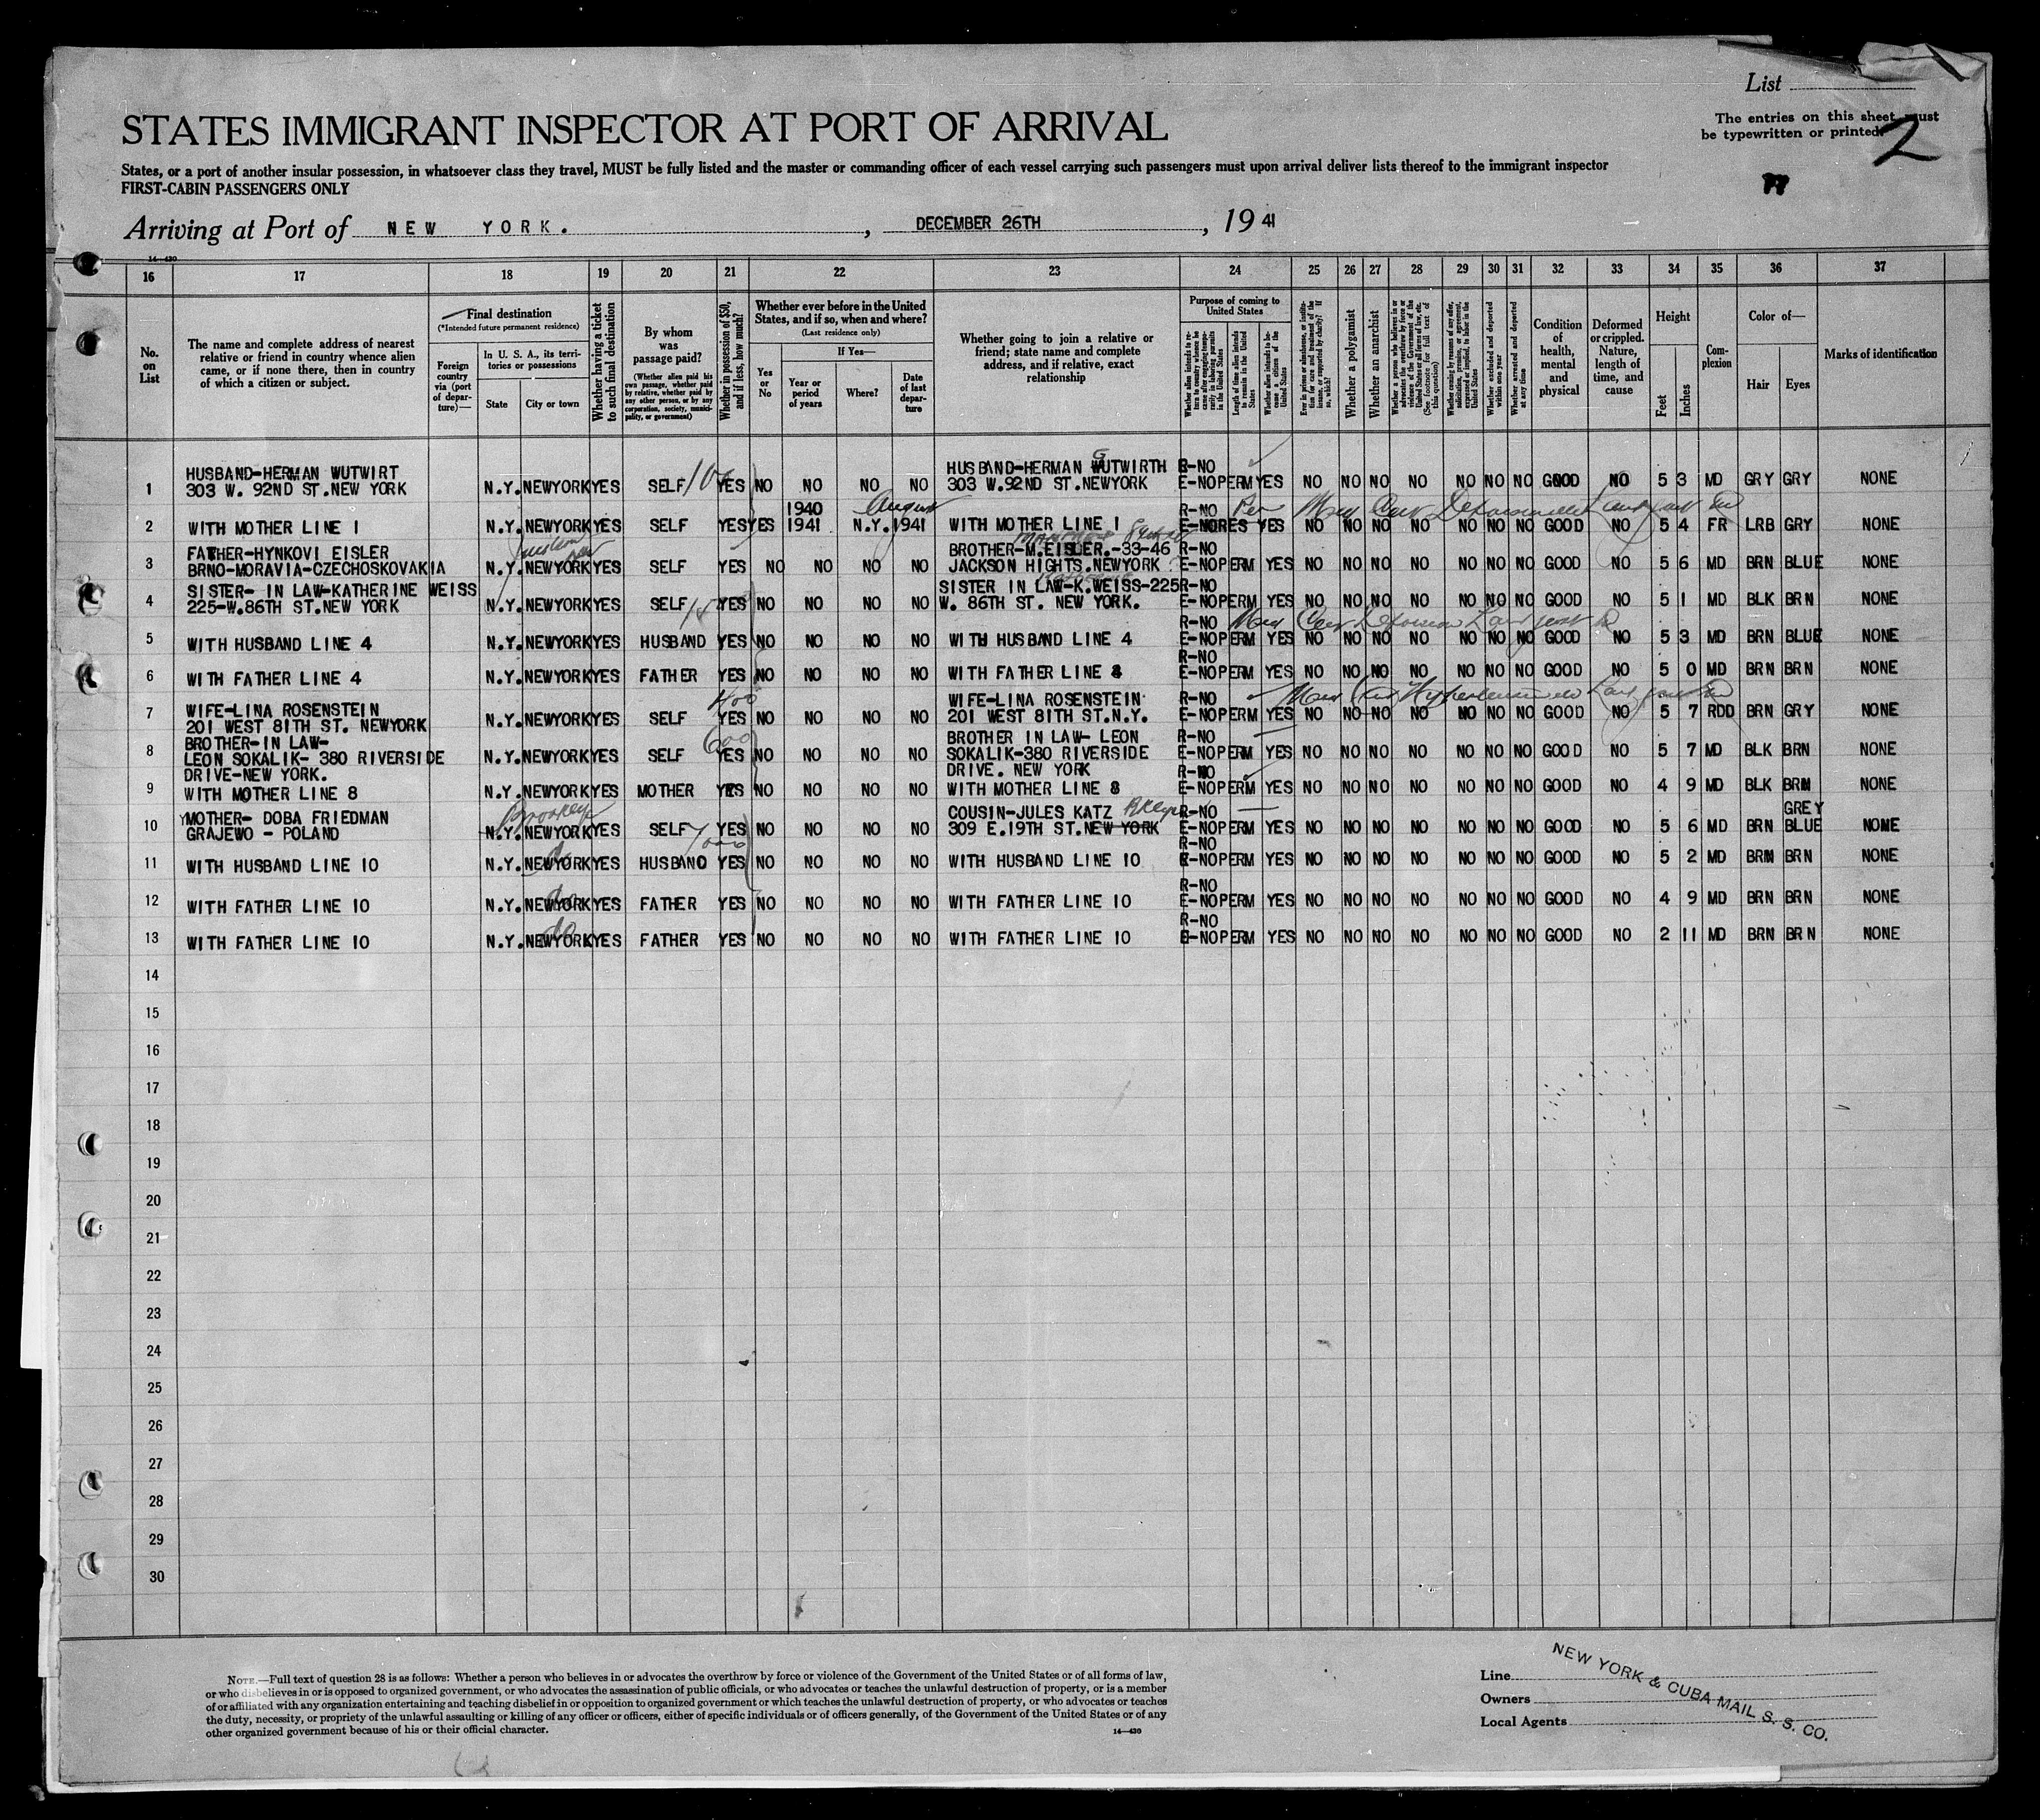 List
The entries on this sheet must
be typewritten or printed.
2
STATES IMMIGRANT INSPECTOR AT PORT OF ARRIVAL
States, or a port of another insular possession, in whatsoever class they travel, MUST be fully listed and the master or commanding officer of each vessel carrying such passengers must upon arrival deliver lists thereof to the immigrant inspector
FIRST-CABIN PASSENGERS ONLY
Arriving at Port of NEW YORK. , DECEMBER 26TH , 19 41
14—430
16 17 18 19 20 21 22 23 24 25 26 27 28 29 30 31 32 33 34 35 36 37
No. on List
The name and complete address of nearest relative or friend in country whence alien came, or if none there, then in country of which a citizen or subject.
Final destination
(*Intended future permanent residence)
Foreign country via (port of departure)—
In U. S. A., its territories or possessions
State
City or town
Whether having a ticket to such final destination
By whom was passage paid?
(Whether alien paid his own passage, whether paid by relative, whether paid by any other person, or by any corporation, society, municipality, or government)
Whether in possession of $50, and if less, how much?
Whether ever before in the United States, and if so, when and where?
(Last residence only)
Yes or No
If Yes—
Year or period of years
Where?
Date of last departure
Whether going to join a relative or friend; state name and complete address, and if relative, exact relationship
Purpose of coming to United States
Whether alien intends to return to country whence he came after engaging temporarily in laboring pursuits in the United States
Length of time alien intends to remain in the United States
Whether alien intends to become a citizen of the United States
Ever in prison or almshouse, or institution for care and treatment of the insane or supported by charity? If so, which?
Whether a polygamist
Whether an anarchist
Whether a person who believes in or advocates the overthrow by force or violence of the Government of the United States or all forms of law, etc. (See footnote for full text of this question)
Whether coming by reasons of any offer, solicitation, promise, or agreement, expressed or implied, to labor in the United States
Whether excluded and deported within one year
Whether arrested and deported at any time
Condition of health, mental and physical
Deformed or crippled. Nature, length of time, and cause
Height
Feet
Inches
Complexion
Color of—
Hair
Eyes
Marks of identification
1 HUSBAND-HERMAN WUTWIRT
303 W. 92ND ST.NEW YORK N.Y. NEWYORK YES SELF YES NO NO NO NO HUSBAND-HERMAN GUTWIRTH
303 W.92ND ST.NEWYORK R-NO
E-NO PERM YES NO NO NO NO NO NO NO GOOD NO 5 3 MD GRY GRY NONE
2 WITH MOTHER LINE 1 N.Y. NEWYORK YES SELF YES YES 1940
1941 N.Y. August 1941 WITH MOTHER LINE 1 R-NO
E-NO RES YES NO NO NO NO NO NO NO GOOD NO 5 4 FR LRB GRY NONE
3 FATHER-HYNKOVI EISLER
BRNO-MORAVIA-CZECHOSKOVAKIA N.Y. NEWYORK YES SELF YES NO NO NO NO BROTHER-M.EISLER.-33-46
JACKSON HIGHTS.NEWYORK R-NO
E-NO PERM YES NO NO NO NO NO NO NO GOOD NO 5 6 MD BRN BLUE NONE
4 SISTER- IN LAW-KATHERINE WEISS
225-W.86TH ST.NEW YORK N.Y. NEWYORK YES SELF YES NO NO NO NO SISTER IN LAW-K.WEISS-225
W. 86TH ST. NEW YORK. R-NO
E-NO PERM YES NO NO NO NO NO NO NO GOOD NO 5 1 MD BLK BRN NONE
5 WITH HUSBAND LINE 4 N.Y. NEWYORK YES HUSBAND YES NO NO NO NO WITH HUSBAND LINE 4 R-NO
E-NO PERM YES NO NO NO NO NO NO NO GOOD NO 5 3 MD BRN BLUE NONE
6 WITH FATHER LINE 4 N.Y. NEWYORK YES FATHER YES NO NO NO NO WITH FATHER LINE 4 R-NO
E-NO PERM YES NO NO NO NO NO NO NO GOOD NO 5 0 MD BRN BRN NONE
7 WIFE-LINA ROSENSTEIN
201 WEST 81TH ST. NEWYORK N.Y. NEWYORK YES SELF 400 YES NO NO NO NO WIFE-LINA ROSENSTEIN
201 WEST 81TH ST.N.Y. R-NO
E-NO PERM YES NO NO NO NO NO NO NO GOOD NO 5 7 RDD BRN GRY NONE
8 BROTHER-IN LAW-
LEON SOKALIK- 380 RIVERSIDE
DRIVE-NEW YORK. N.Y. NEWYORK YES SELF 600 YES NO NO NO NO BROTHER IN LAW- LEON
SOKALIK-380 RIVERSIDE
DRIVE. NEW YORK R-NO
E-NO PERM YES NO NO NO NO NO NO NO GOOD NO 5 7 MD BLK BRN NONE
9 WITH MOTHER LINE 8 N.Y. NEWYORK YES MOTHER YES NO NO NO NO WITH MOTHER LINE 8 R-NO
E-NO PERM YES NO NO NO NO NO NO NO GOOD NO 4 9 MD BLK BRN NONE
10 MOTHER- DOBA FRIEDMAN
GRAJEWO - POLAND N.Y. NEWYORK Brooklyn YES SELF YES NO NO NO NO COUSIN-JULES KATZ Bklyn
309 E.19TH ST.NEW YORK R-NO
E-NO PERM YES NO NO NO NO NO NO NO GOOD NO 5 6 MD BRN GREY
BLUE NONE
11 WITH HUSBAND LINE 10 N.Y. NEWYORK do YES HUSBAND YES NO NO NO NO WITH HUSBAND LINE 10 R-NO
E-NO PERM YES NO NO NO NO NO NO NO GOOD NO 5 2 MD BRN BRN NONE
12 WITH FATHER LINE 10 N.Y. NEWYORK do YES FATHER YES NO NO NO NO WITH FATHER LINE 10 R-NO
E-NO PERM YES NO NO NO NO NO NO NO GOOD NO 4 9 MD BRN BRN NONE
13 WITH FATHER LINE 10 N.Y. NEWYORK do YES FATHER YES NO NO NO NO WITH FATHER LINE 10 R-NO
E-NO PERM YES NO NO NO NO NO NO NO GOOD NO 2 11 MD BRN BRN NONE
14
15
16
17
18
19
20
21
22
23
24
25
26
27
28
29
30
NOTE.—Full text of question 28 is as follows: Whether a person who believes in or advocates the overthrow by force or violence of the Government of the United States or of all forms of law,
or who disbelieves in or is opposed to organized government, or who advocates the assassination of public officials, or who advocates or teaches the unlawful destruction of property, or is a member
of or affiliated with any organization entertaining and teaching disbelief in or opposition to organized government or which teaches the unlawful destruction of property, or who advocates or teaches
the duty, necessity, or propriety of the unlawful assaulting or killing of any officer or officers, either of specific individuals or of officers generally, of the Government of the United States or of any
other organized government because of his or their official character.
14—430
Line
Owners
Local Agents
NEW YORK & CUBA MAIL S. S. CO.